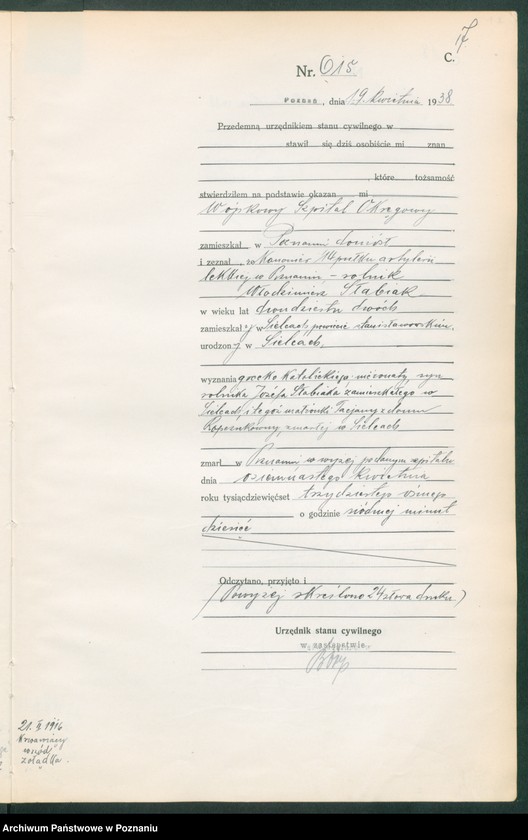 17
C.
Nr. 615.
Poznań, dnia 19 kwietnia 1938
Przedemną urzędnikiem stanu cywilnego w
stawił się dziś osobiście mi znan
, które tożsamość
stwierdziłem na podstawie okazan mi
Wojskowy Szpital Okręgowy
zamieszkał w Poznaniu doniósł
i zeznał, że Kanonier 14 pułku artylerii
lekkiej w Poznaniu – rolnik
Włodzimierz Stabiak
w wieku lat dwudziestu dwóch
zamieszkały w Sielcach, powiecie stanisławowskim,
urodzony w Sielcach,
wyznania grecko katolickiego, nieżonaty, syn
rolnika Józefa Stabiaka zamieszkałego w
Sielcach, i tegoż małżonki Tacjanny z domu
zmarłej w Sielcach
zmarł w Poznaniu w wyżej podanym szpitalu
dnia osiemnastego kwietnia
roku tysiącdziewięćset trzydziestego ósmego
o godzinie siódmej minut
dziesięć
Odczytano, przyjęto i
(Powyżej skreślono 24 słowa druku.)
Urzędnik stanu cywilnego
w zastępstwie.
21. 1916
Krwawiący
wrzód
żołądka.
Archiwum Państwowe w Poznaniu